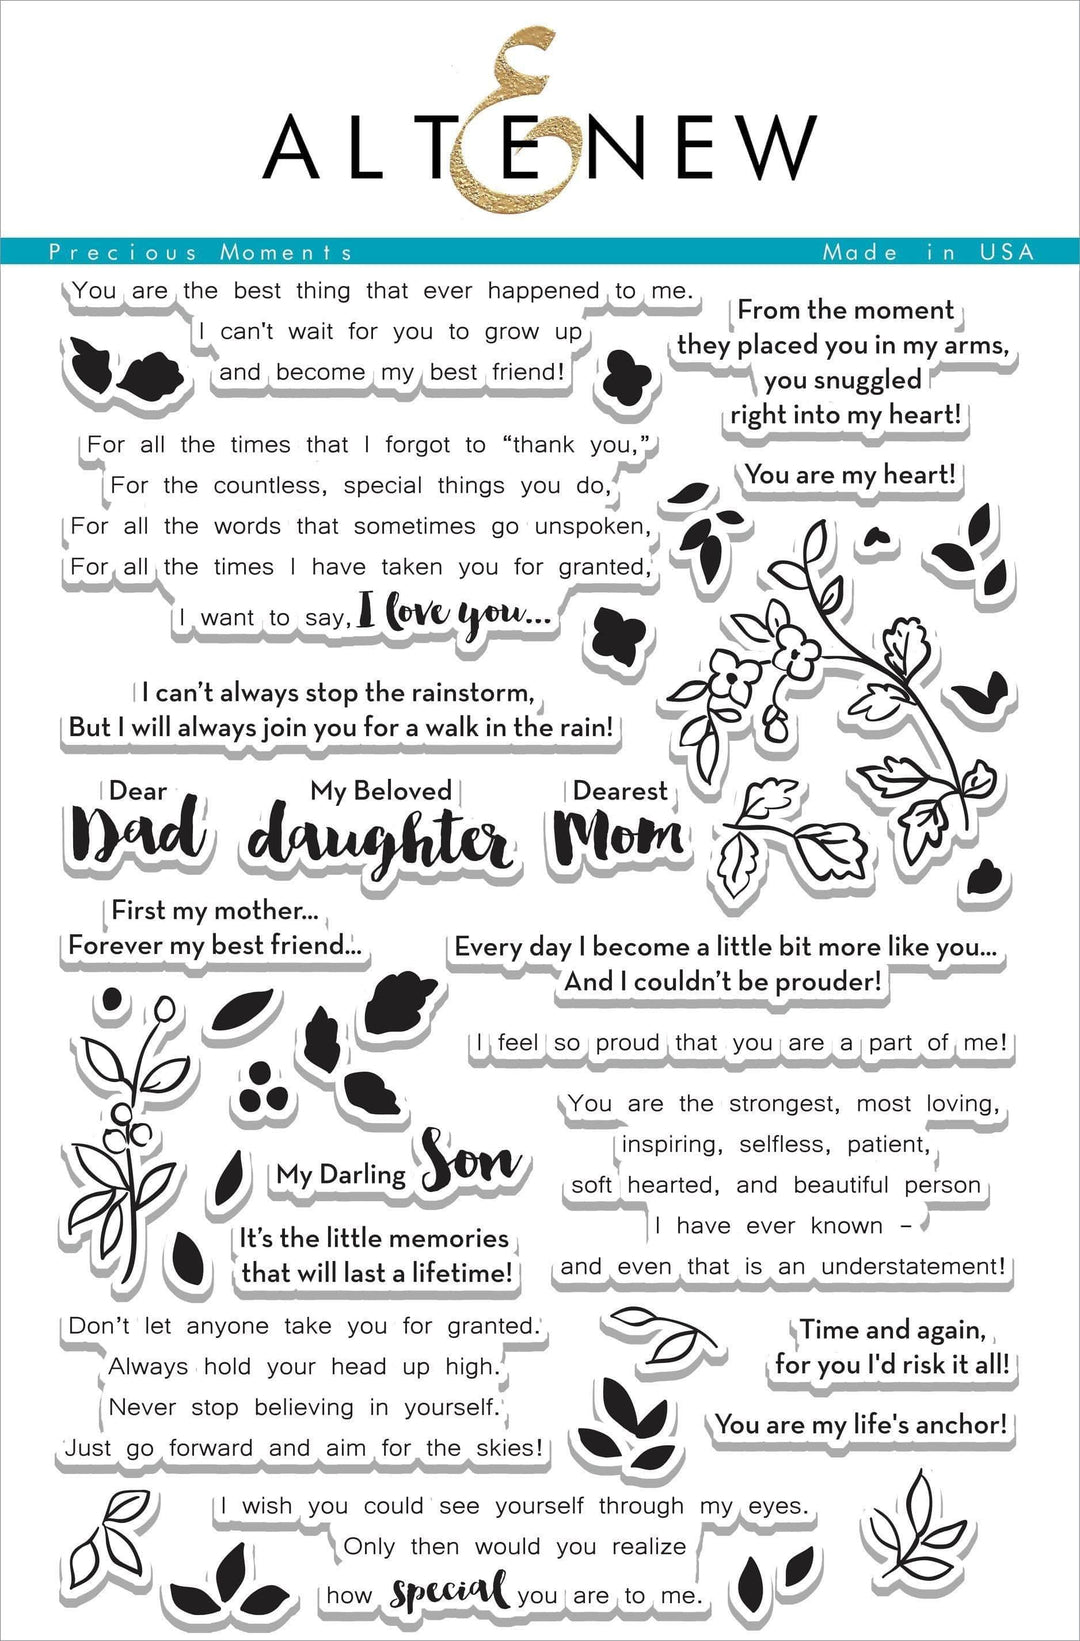 ALTENEW
Precious Moments
Made in USA
You are the best thing that ever happened to me.
I can't wait for you to grow up
and become my best friend!
From the moment
they placed you in my arms,
you snuggled
right into my heart!
You are my heart!
For all the times that I forgot to “thank you,”
For the countless, special things you do,
For all the words that sometimes go unspoken,
For all the times I have taken you for granted,
I want to say, I love you...
I can’t always stop the rainstorm,
But I will always join you for a walk in the rain!
Dear
Dad
My Beloved
daughter
Dearest
Mom
First my mother...
Forever my best friend...
Every day I become a little bit more like you...
And I couldn’t be prouder!
I feel so proud that you are a part of me!
You are the strongest, most loving,
inspiring, selfless, patient,
soft hearted, and beautiful person
I have ever known –
and even that is an understatement!
My Darling Son
It’s the little memories
that will last a lifetime!
Don’t let anyone take you for granted.
Always hold your head up high.
Never stop believing in yourself.
Just go forward and aim for the skies!
Time and again,
for you I'd risk it all!
You are my life's anchor!
I wish you could see yourself through my eyes.
Only then would you realize
how special you are to me.